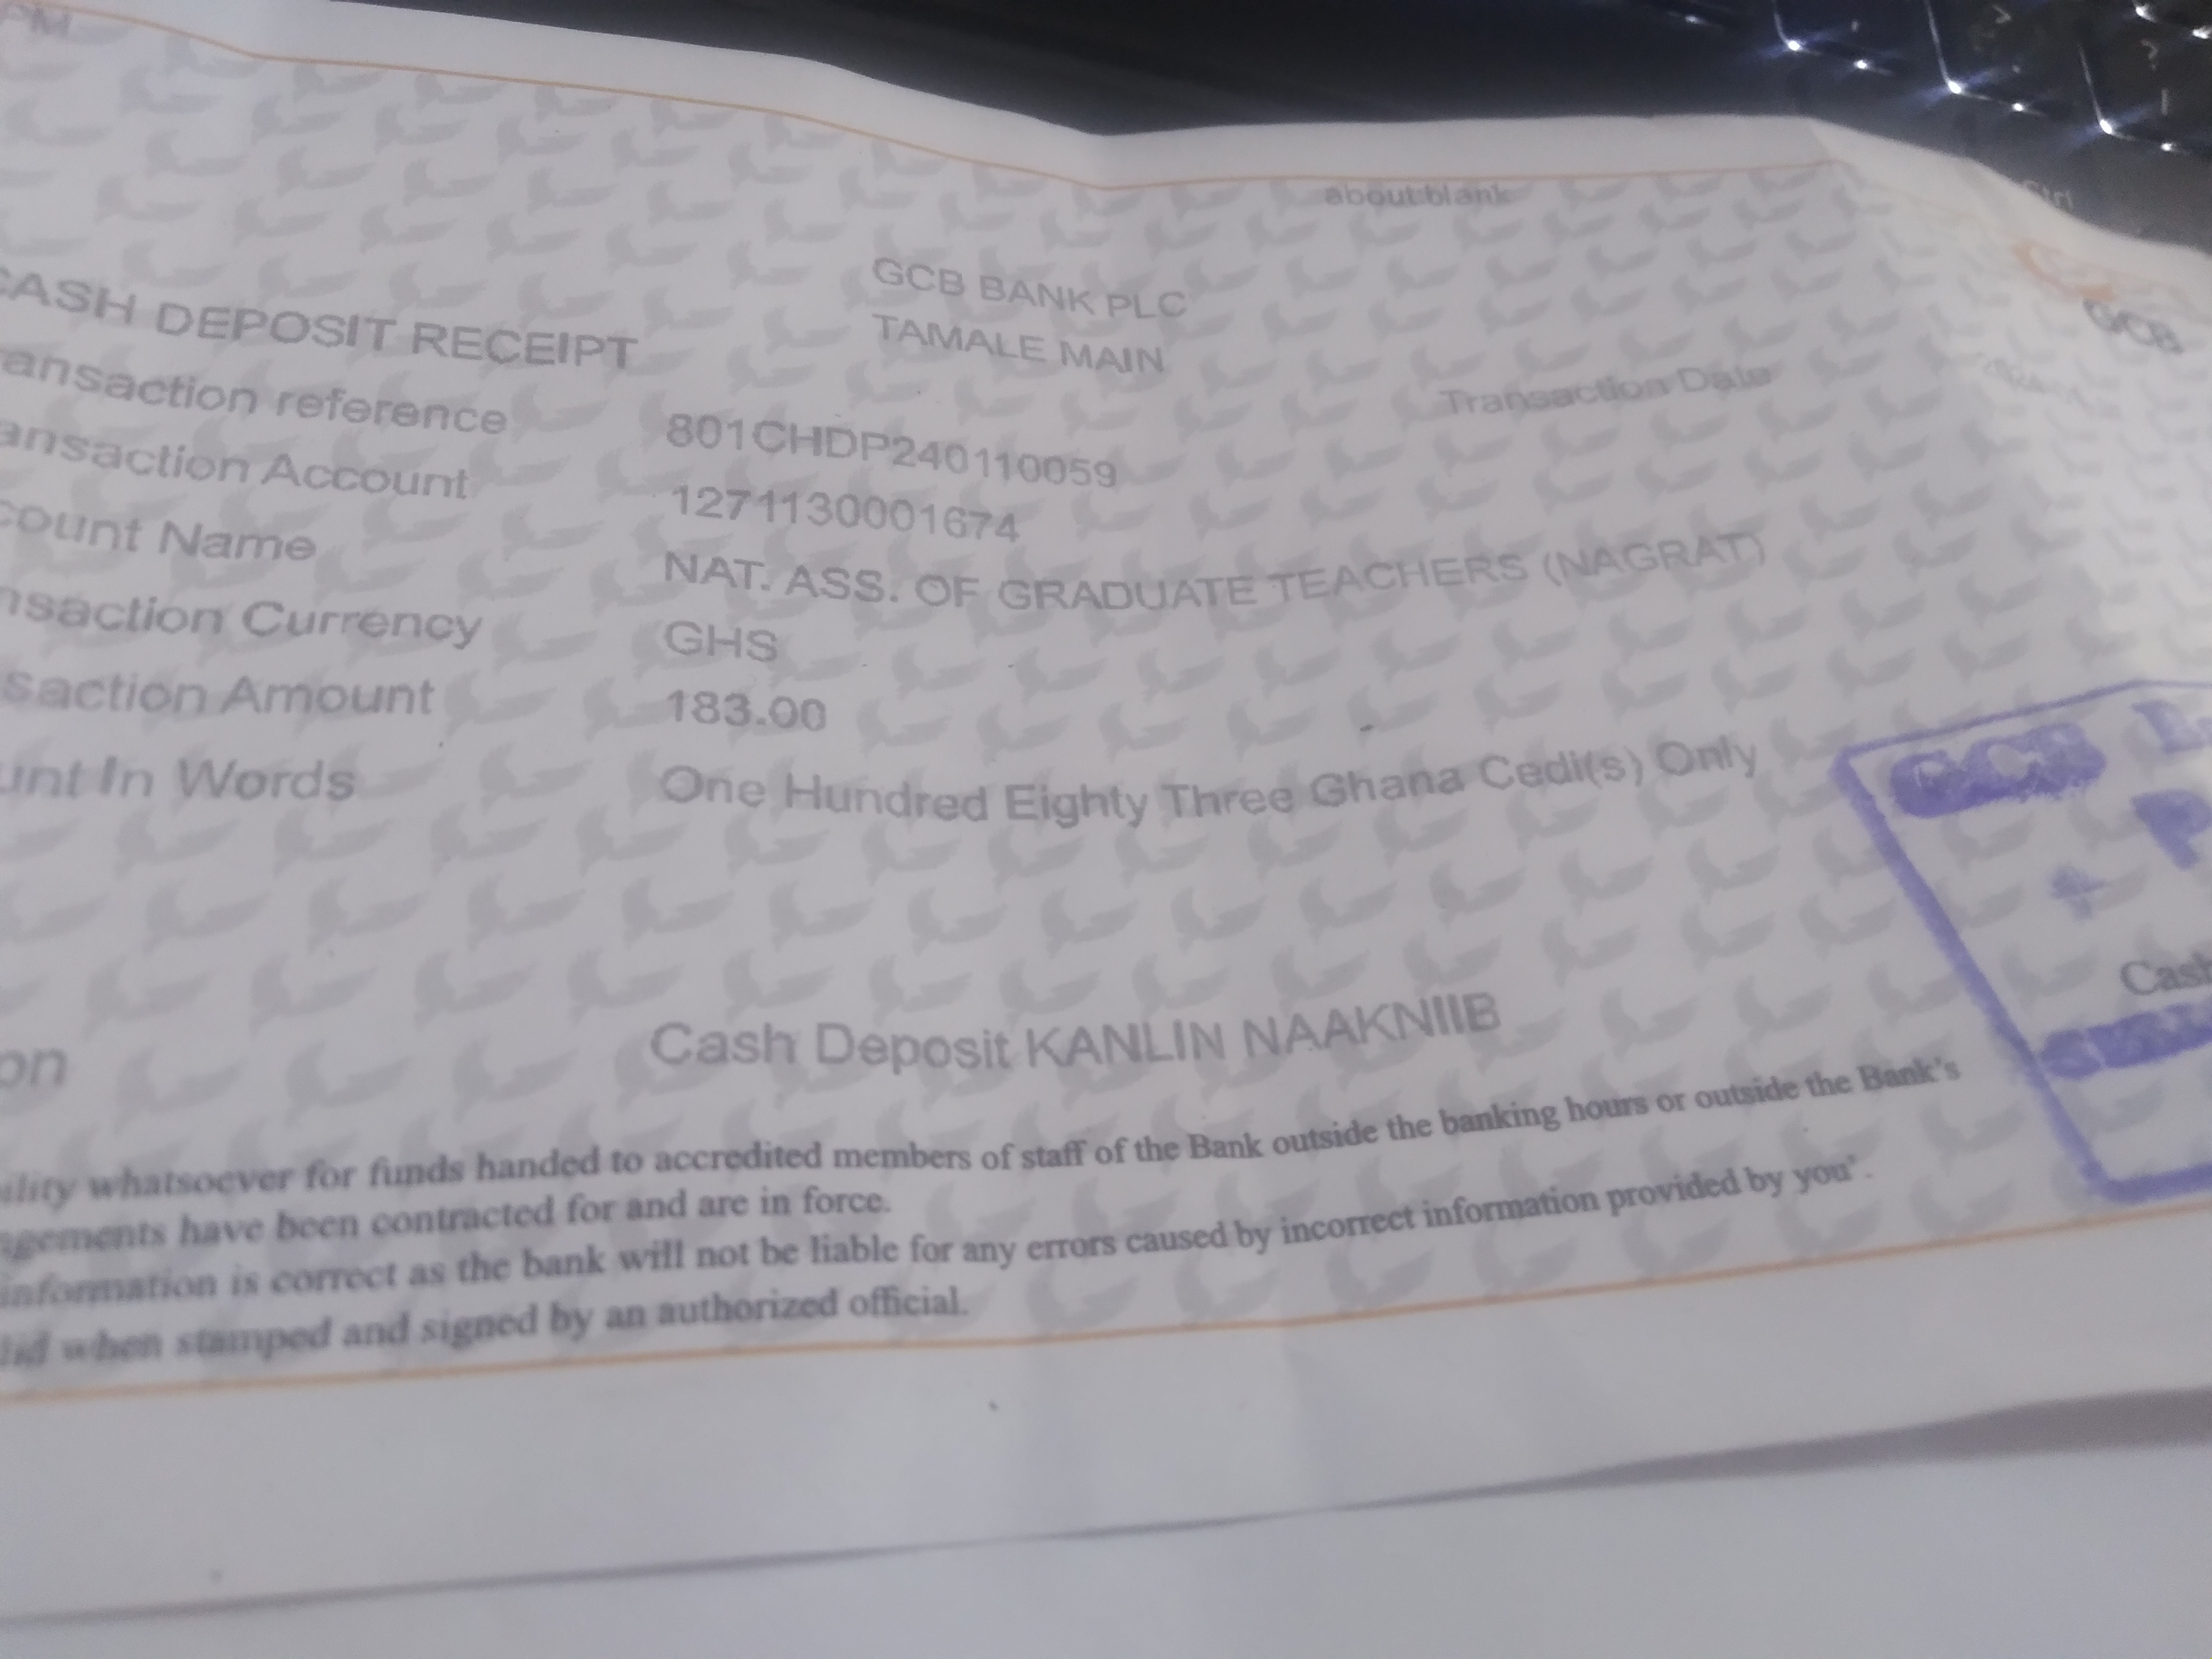 PM
about:blank
GCB
GCB BANK PLC
TAMALE MAIN
CASH DEPOSIT RECEIPT
Transaction Date
ansaction reference 801CHDP240110059
ansaction Account 1271130001674
count Name NAT. ASS. OF GRADUATE TEACHERS (NAGRAT)
nsaction Currency GHS
saction Amount 183.00
unt In Words One Hundred Eighty Three Ghana Cedi(s) Only
GCB
P
Cash
on Cash Deposit KANLIN NAAKNIIB
ility whatsoever for funds handed to accredited members of staff of the Bank outside the banking hours or outside the Bank's
gements have been contracted for and are in force.
information is correct as the bank will not be liable for any errors caused by incorrect information provided by you'.
lid when stamped and signed by an authorized official.